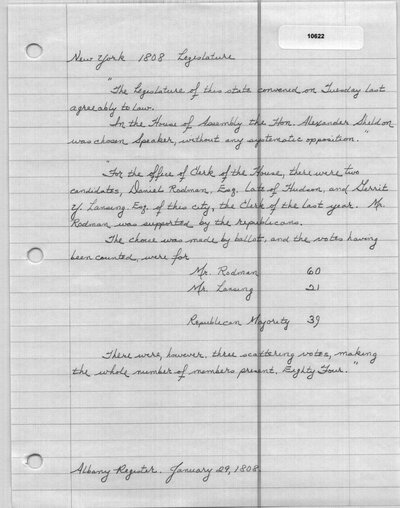 10622
New York 1808 Legislature
"The Legislature of this state convened on Tuesday last
agreeably to law.
"In the House of Assembly the Hon. Alexander Sheldon
was chosen Speaker, without any systematic opposition."
"For the office of Clerk of the House, there were two
candidates, Daniel Rodman, Esq. Late of Hudson, and Gerrit
Y. Lansing Esq. of this city, the Clerk of the last year. Mr.
Rodman was supported by the republicans.
The choice was made by ballot, and the votes having
been counted, were for
Mr. Rodman 60
Mr. Lansing 21
Republican Majority 39
There were, however, three scattering votes, making
the whole number of members present, Eighty Four."
Albany Register. January 29, 1808